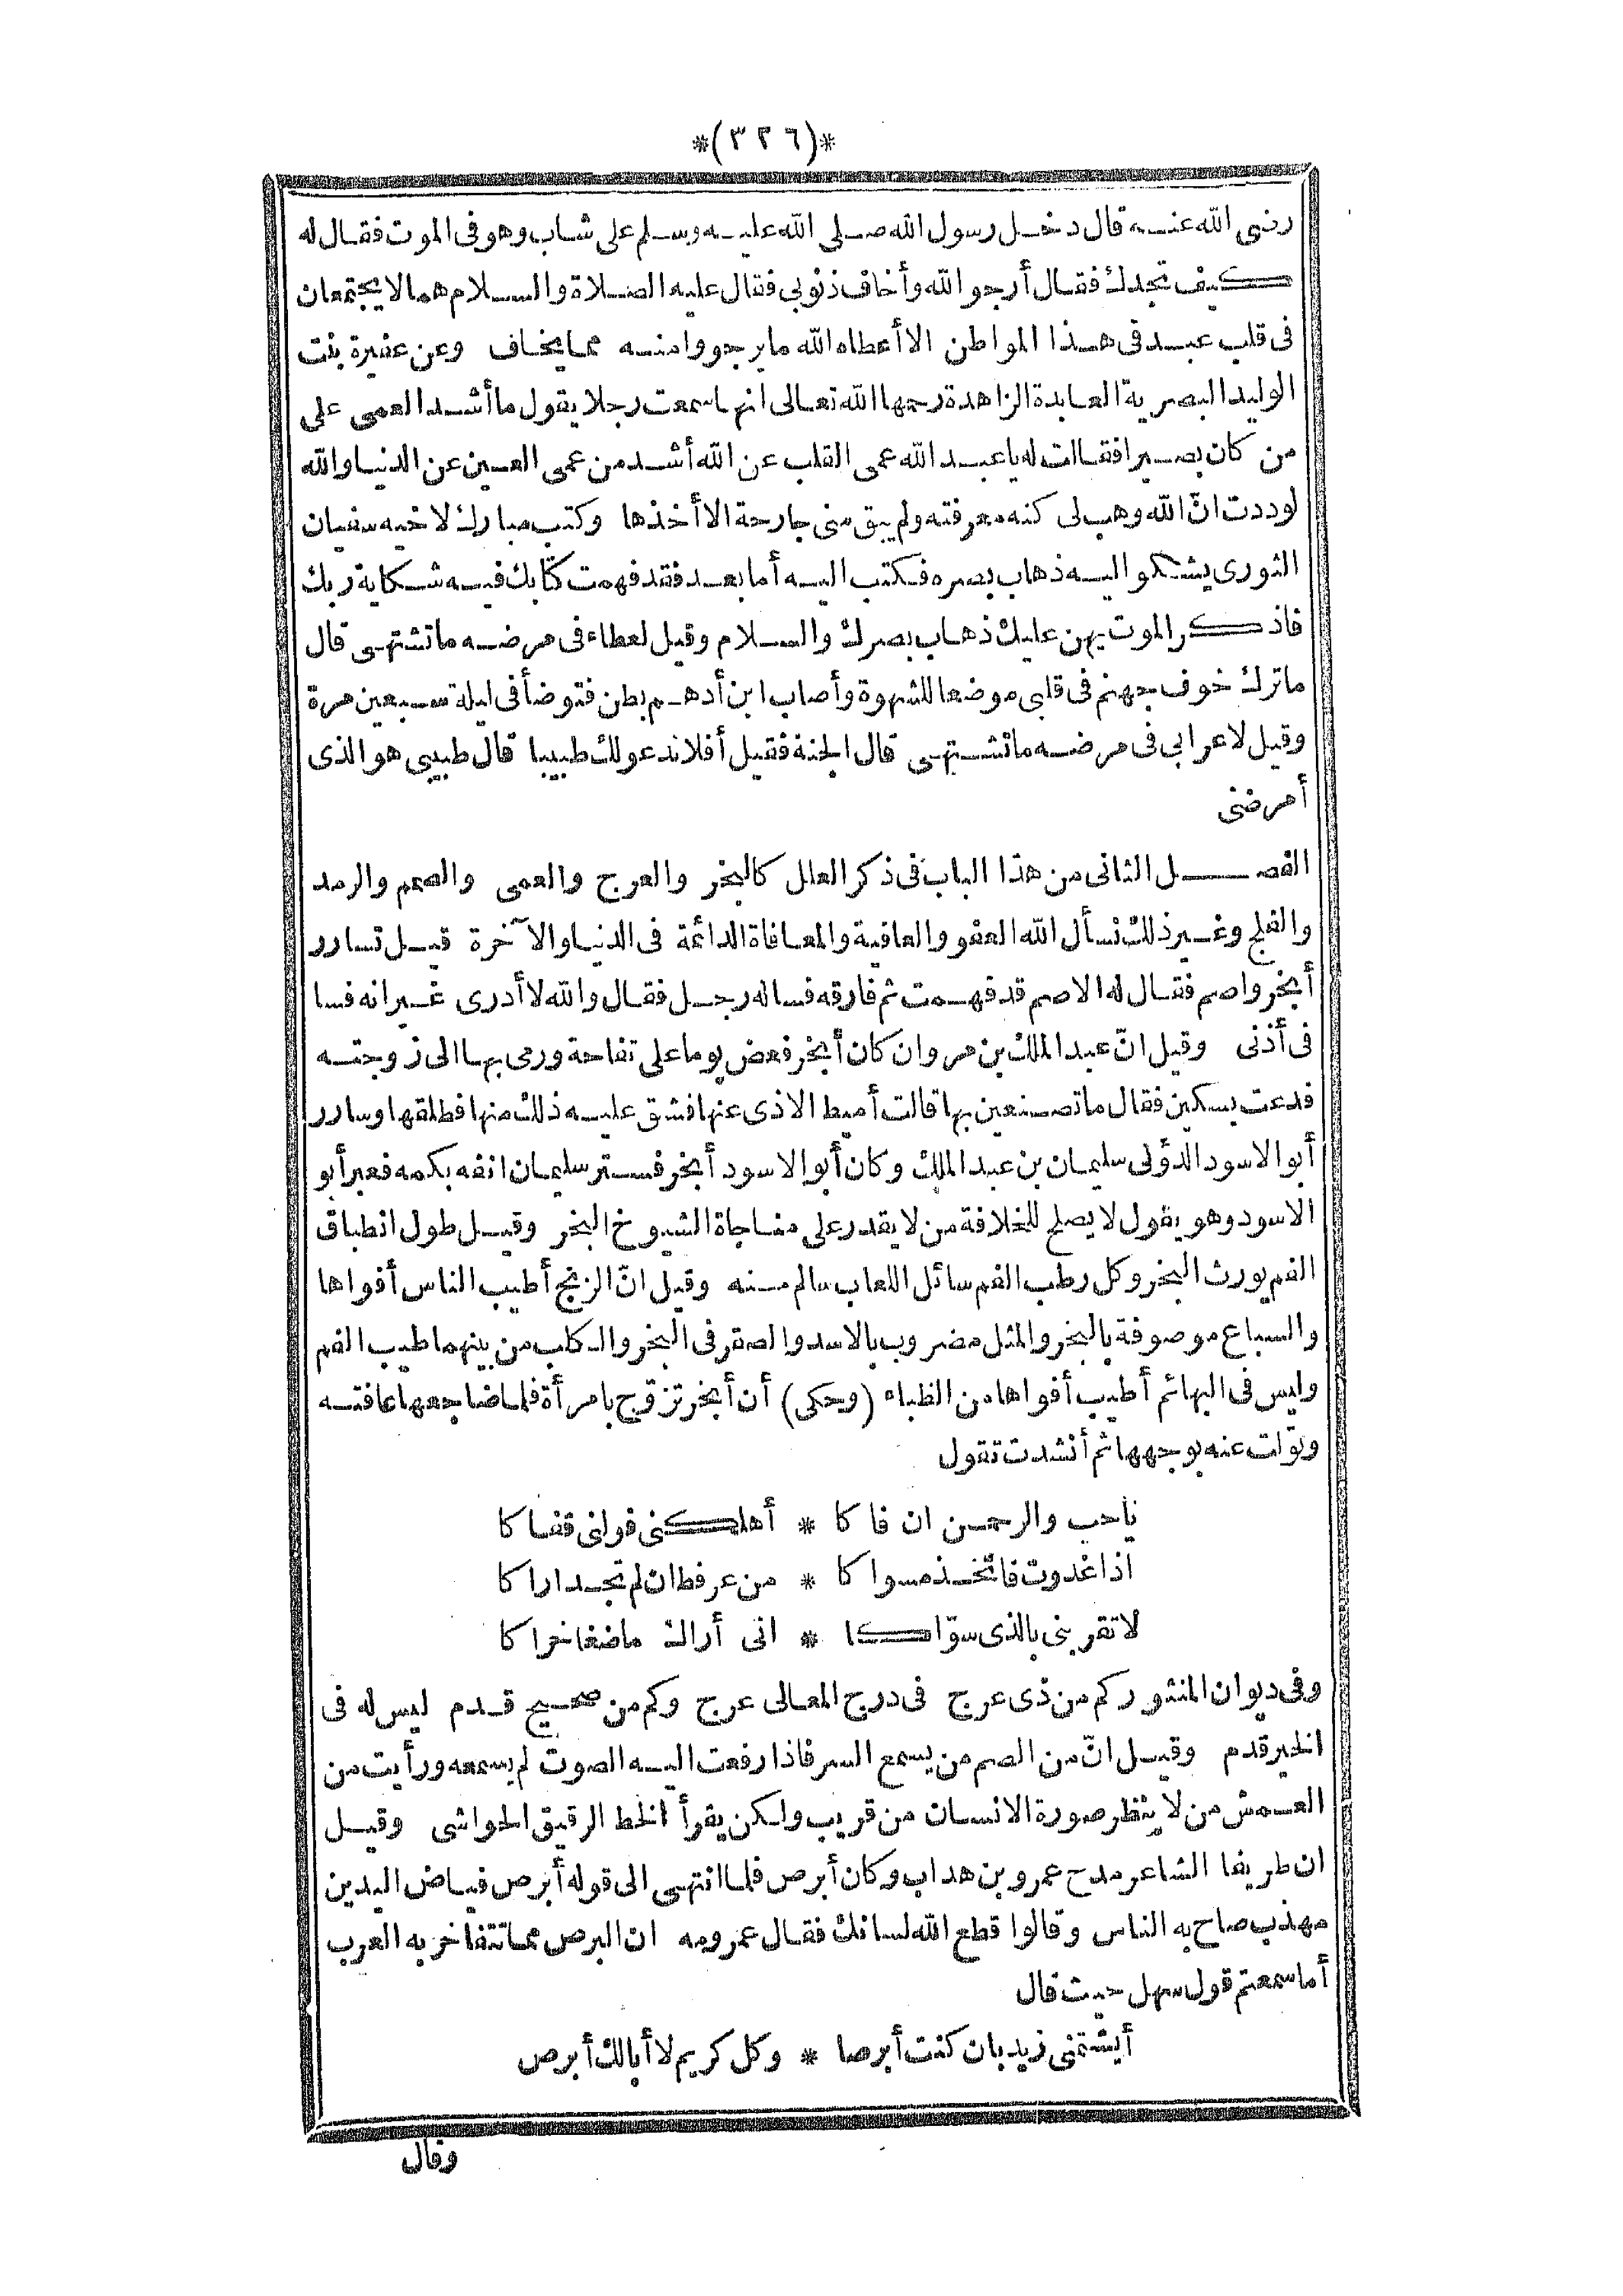 *(٣٢٦)*
رضى الله عنه قال دخل رسول الله صلى الله عليه وسلم على شاب وهو فى الموت فقال له
كيف تجدك فقال أرجو الله وأخاف ذنوبى فقال عليه الصلاة والسلام هما لا يجتمعان
فى قلب عبد فى هذا المواطن الا أعطاه الله ما يرجو وامنه مما يخاف وعن عفيرة بنت
الوليد البصرية العابدة الزاهدة رحمها الله تعالى انها سمعت رجلا يقول ما أشد العمى على
من كان بصيرا فقالت له يا عبد الله عمى القلب عن الله أشد من عمى العين عن الدنيا والله
لوددت انّ الله وهب لى كنه معرفته ولم يبق منى جارحة الا أخذها وكتب مبارك لاخيه سفيان
الثورى يشكو اليه ذهاب بصره فكتب اليه أما بعد فقد فهمت كتابك فيه شكاية ربك
فاذكر الموت يهن عليك ذهاب بصرك والسلام وقيل لعطاء فى مرضه ما تشتهى قال
ما ترك خوف جهنم فى قلبى موضعا للشهوة وأصاب ابن أدهم بطن فتوضأ فى ليلة سبعين مرة
وقيل لاعرابى فى مرضه ما تشتهى قال الجنة فقيل أفلا ندعو لك طبيبا قال طبيبى هو الذى
أمرضنى
الفصل الثانى من هذا الباب فى ذكر العلل كالبخر والعرج والعمى والصمم والرمد
والفلج وغير ذلك نسأل الله العفو والعافية والمعافاة الدائمة فى الدنيا والآخرة قيل تسارر
أبخر واصم فقال له الاصم قد فهمت ثم فارقه فساله رجل فقال والله لا أدرى غير انه فسا
فى أذنى وقيل انّ عبد الملك بن مروان كان أبخر فعض يوما على تفاحة ورمى بها الى زوجته
فدعت بسكين فقال ما تصنعين بها قالت أميط الاذى عنها فشق عليه ذلك منها فطلقها وسارر
أبو الاسود الدؤلى سليمان بن عبد الملك وكان أبو الاسود أبخر فستر سليمان انفه بكمه فعبر أبو
الاسود وهو يقول لا يصلح للخلافة من لا يقدر على مناجاة الشيوخ البخر وقيل طول انطباق
الفم يورث البخر وكل رطب الفم سائل اللعاب سالم منه وقيل انّ الزنج أطيب الناس أفواها
والسباع موصوفة بالبخر والمثل مضروب بالاسد والصقر فى البخر والكلب من بينهما طيب الفم
وليس فى البهائم أطيب أفواها من الظباء (وحكى) أن أبخر تزوّج بامرأة فلما ضاجعها عافته
وتولت عنه بوجهها ثم أنشدت تقول
ياحب والرحمن ان فاكا * أهلكنى فولنى قفاكا
اذا غدوت فاتخذ مسواكا * من عرفط ان لم تجد اراكا
لا تقربنى بالذى سوّاكا * انى أراك ماضغا خراكا
وفى ديوان المنثور كم من ذى عرج فى درج المعالى عرج وكم من صحيح قدم ليس له فى
الخير قدم وقيل انّ من الصم من يسمع السر فاذا رفعت اليه الصوت لم يسمعه ورأيت من
العمش من لا ينظر صورة الانسان من قريب ولكن يقرأ الخط الرقيق الحواشى وقيل
ان طريفا الشاعر مدح عمرو بن هداب وكان أبرص فلما انتهى الى قوله أبرص فياض اليدين
مهذب صاح به الناس وقالوا قطع الله لسانك فقال عمرو مه ان البرص مما تتفاخر به العرب
أما سمعتم قول سهل حيث قال
أيشتمنى زيد بان كنت أبرصا * وكل كريم لا أبالك أبرص
وقال